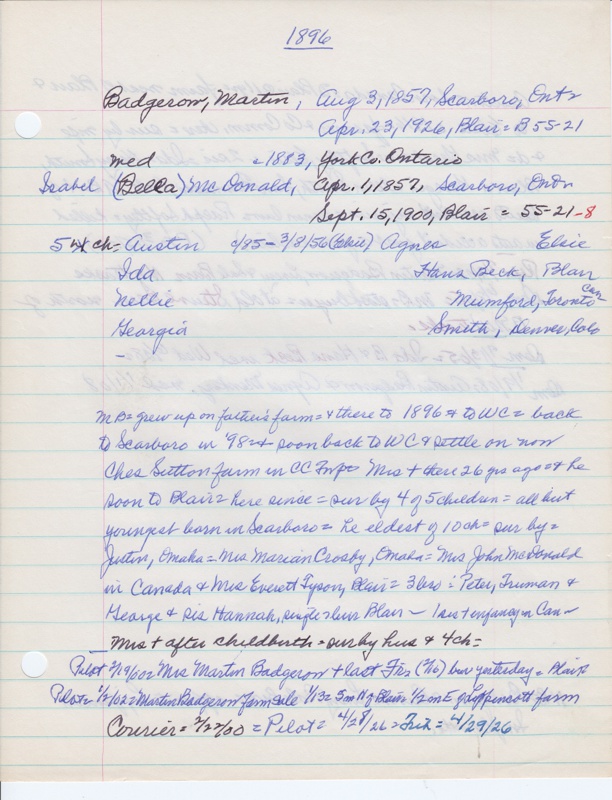 1896
Badgerow, Martin, Aug 3, 1857, Scarboro, Ont =
Apr. 23, 1926, Blair = B 55-21
med c1883, York Co. Ontario
Isabel (Bella) McDonald, Apr. 1, 1857, Scarboro, Ont =
Sept. 15, 1900, Blair = 55-21-8
5 ch - Austin c/85 - 3/8/56 (Elsie) Agnes Elsie
Ida Hans Beck, Blair
Nellie Mumford, Toronto Can
Georgia Smith, Denver, Colo
-
MB = grew up on father's farm = & there to 1896 & to WC = back
to Scarboro in '98 = & soon back to WC & settle on now
Ches Sutton farm in CC Twp = Mrs + there 26 yrs ago = & he
soon to Blair = here since = sur by 4 of 5 children = all but
youngest born in Scarboro = he eldest of 10 ch = sur by =
Justin, Omaha = Mrs Marian Crosby, Omaha = Mrs John McDonald
in Canada & Mrs Everett Tyson, Blair = 3 bro : Peter, Truman &
George & sis Hannah, single = bur Blair - 1 sis + in Can -
Mrs + after childbirth = sur by hus & 4 ch =
Pilot 9/19/00 = Mrs Martin Badgerow + last Fri bur yesterday = Blair
Pilot = 1/2/02 = Martin Badgerow farm sale 1/13 = 5 m N of Blair 1/2 m E of Lippincott farm
Courier = 9/22/00 = Pilot = 4/28/26 = Trib = 4/29/26